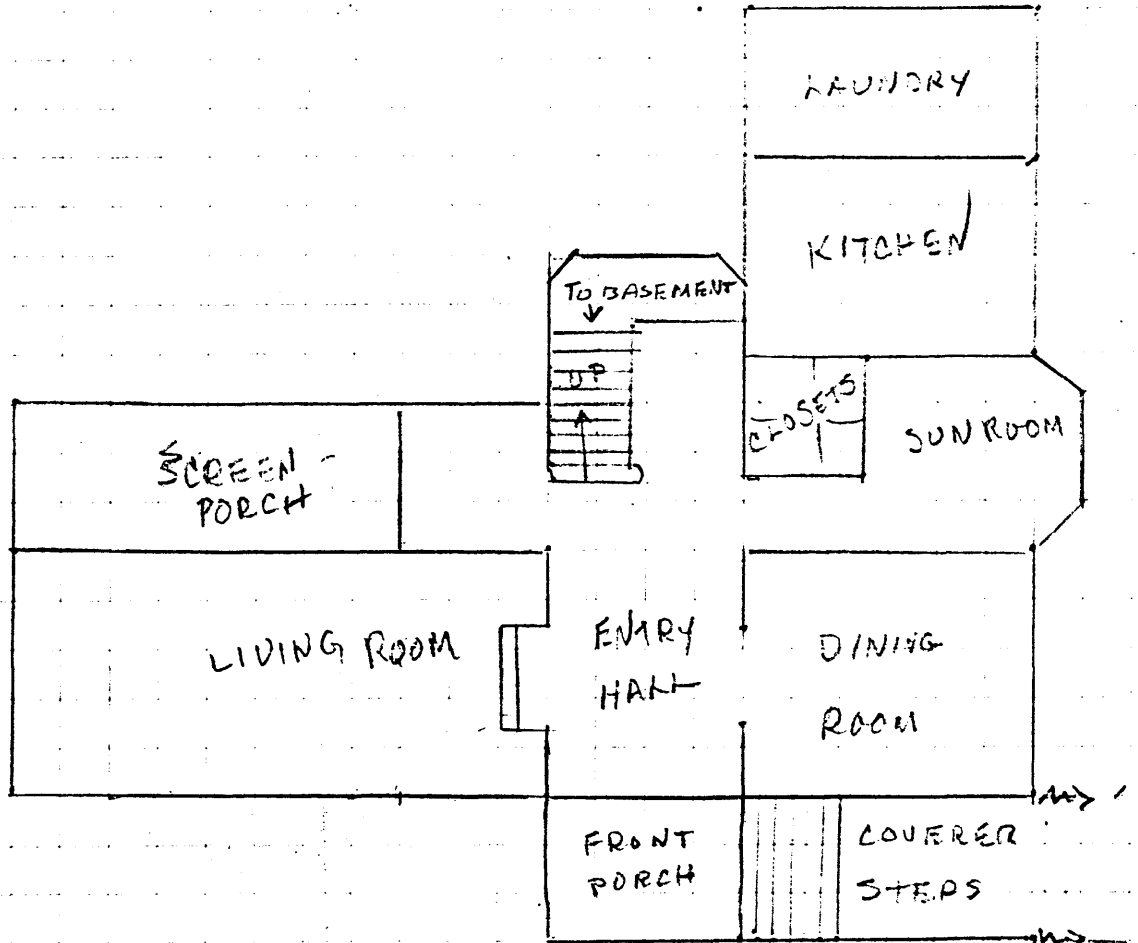 LAUNDRY
KITCHEN
TO BASEMENT
UP
CLOSETS
SUNROOM
SCREEN
PORCH
LIVING ROOM
ENTRY
HALL
DINING
ROOM
FRONT
PORCH
COVERER
STEPS